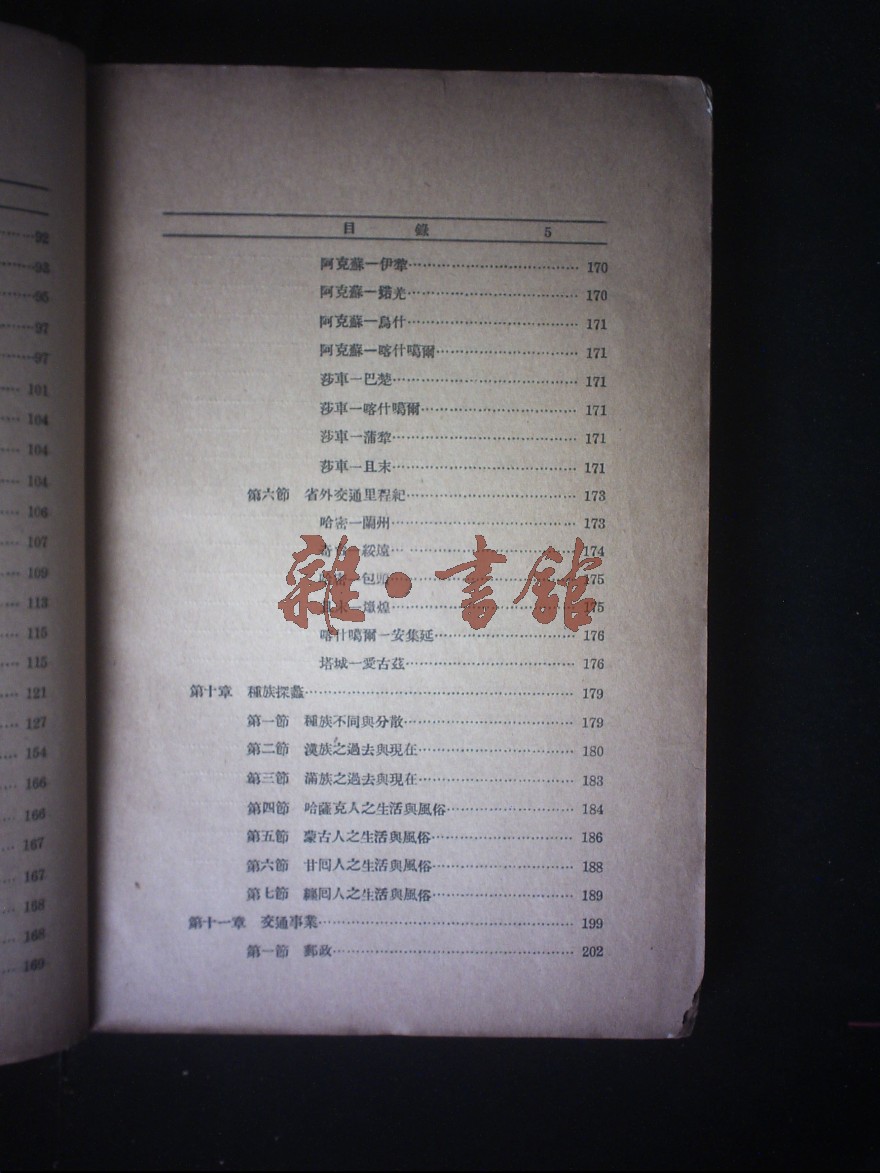 92
93
95
97
97
101
104
104
104
106
107
109
113
115
115
121
127
154
166
166
167
167
168
168
169
目 錄 5
阿克蘇—伊犂 170
阿克蘇— 170
阿克蘇—烏什 171
阿克蘇—喀什噶爾 171
莎車—巴楚 171
莎車—喀什噶爾 171
莎車—蒲犂 171
莎車—且末 171
第六節 省外交通里程紀 173
哈密—蘭州 173
—綏遠 174
—包頭 175
—燉煌 175
喀什噶爾—安集延 176
塔城—愛古茲 176
第十章 種族探蠡 179
第一節 種族不同與分散 179
第二節 漢族之過去與現在 180
第三節 滿族之過去與現在 183
第四節 哈薩克人之生活與風俗 184
第五節 蒙古人之生活與風俗 186
第六節 甘回人之生活與風俗 188
第七節 纏回人之生活與風俗 189
第十一章 交通事業 199
第一節 郵政 202
雜·書館